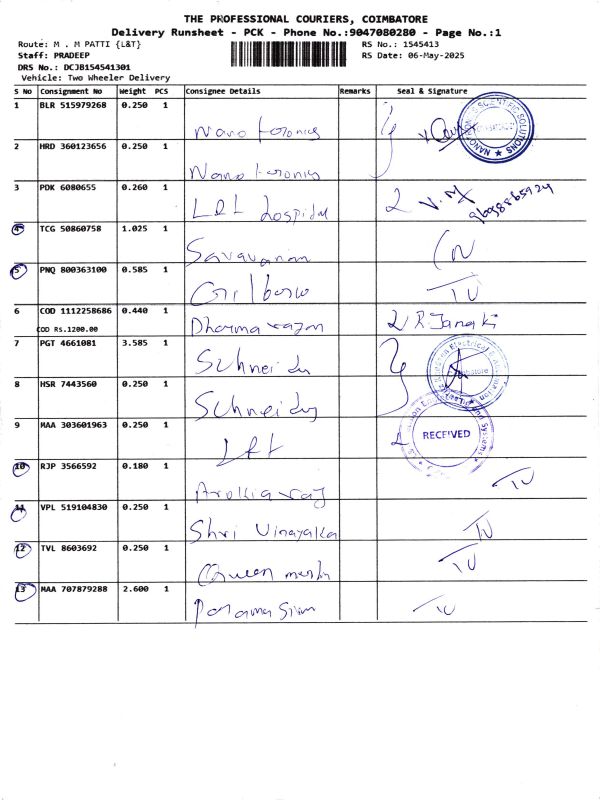 THE PROFESSIONAL COURIERS, COIMBATORE
Delivery Runsheet - PCK - Phone No.:9047080280 - Page No.:1
Route: M . M PATTI {L&T}
RS No.: 1545413
Staff: PRADEEP
RS Date: 06-May-2025
DRS No.: DCJB154541301
Vehicle: Two Wheeler Delivery
S No Consignment No Weight PCS Consignee Details Remarks Seal & Signature
1 BLR 515979268 0.250 1
2 HRD 360123656 0.250 1
3 PDK 6080655 0.260 1 L&L hospital
4 TCG 50860758 1.025 1 Saravanan
5 PNQ 800363100 0.585 1
6 COD 1112258686 0.440 1 Dharmarajan R.Janaki
COD RS.1200.00
7 PGT 4661081 3.585 1 Schneider
8 HSR 7443560 0.250 1 Schneider
9 MAA 303601963 0.250 1 L&T RECEIVED
10 RJP 3566592 0.180 1 Arokiaraj
11 VPL 519104830 0.250 1 Shri Vinayaka
12 TVL 8603692 0.250 1 Queen
13 MAA 707879288 2.600 1